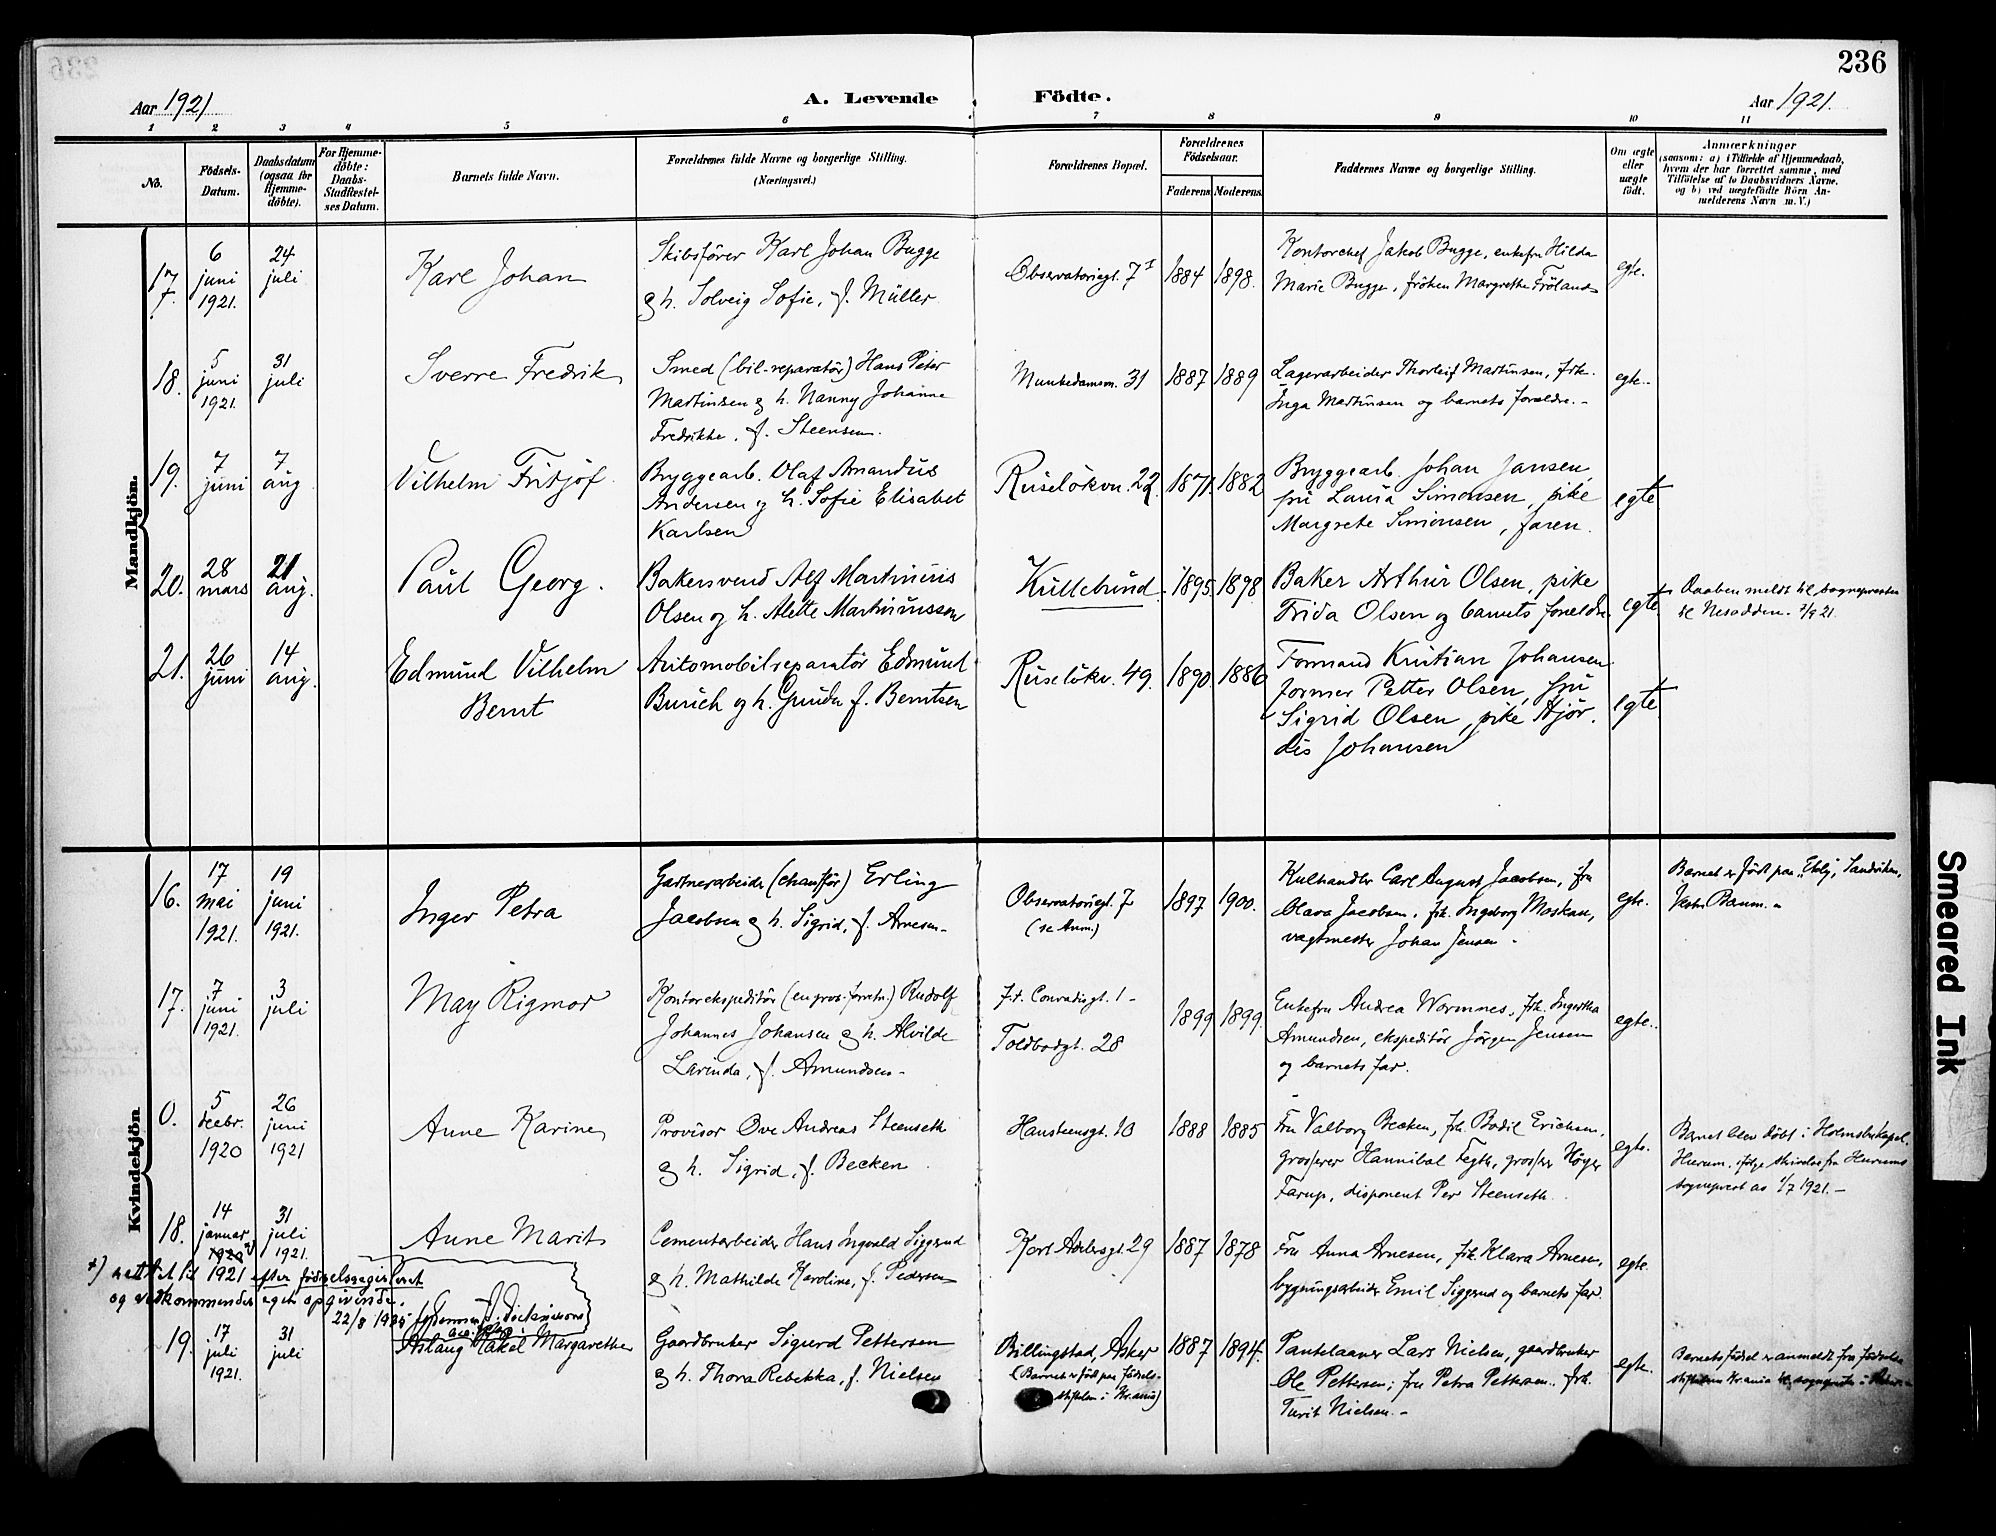 236
Aar 1921
A. Levende Födte.
Aar 1921.
1 2 3 4 5 6 7 8 9 10 11
No.
Födsels-Datum.
Daabsdatum (ogsaa for Hjemmedöbte).
For Hjemmedöbte: Daabs-Stadfestelses Datum.
Barnets fulde Navn.
Forældrenes fulde Navne og borgerlige Stilling. (Næringsvei.)
Forældrenes Bopæl.
Forældrenes Födselsaar.
Faderens Moderens
Faddernes Navne og borgerlige Stilling.
Om ægte eller uægte födt.
Anmærkninger
(saasom: a) i Tilfælde af Hjemmedaab, hvem der har forrettet samme, med Tilföielse af to Daabsvidners Navne, og b) ved uægtefödte Börn Anmelderens Navn m. V.)
Mandkjön.
17.
6 juni 1921.
24 juli
Karl Johan
Skibsfører Karl Johan Bugge
& h. Solveig Sofie, f. Müller
Observatoriegt. 7 I
1884 1898.
Kontorchef Jakob Bugge, enkefru Hilda
Marie Bugge, frøken Margrethe Frøland
egte.
18.
5 juni 1921.
31 juli
Sverre Fredrik
Smed (bil-reparatør) Hans Peter
Martinsen & h. Nanny Johanne
Fredrikke, f. Steensen.
Munkedamsv. 31
1887 1889
Lagerarbeider Thorleif Martinsen, frk.
Inga Martinsen og barnets foreldre.
egte.
19.
7 juni
7 aug.
Vilhelm Fritjof
Bryggearb. Olaf Amandus
Andersen og h. Sofie Elisabet
Karlsen
Ruseløkvn. 22.
1871. 1882
Bryggearb. Johan Jansen
fru Laura Simonsen, pike
Margrete Simonsen, faren.
egte
20.
28 mars
21 aug.
Paul Georg.
Bakersvend Alf Martinius
Olsen og h. Alette Martiniussen
Kullebund.
1895 1898
Baker Arthur Olsen, pike
Frida Olsen og barnets foreldre
egte
Daaben meldt til sogneprесten
til Nesodden. 7/9 21.
21.
26 juni
14 aug.
Edmund Vilhelm
Bernt
Automobilreparatør Edmund
Burich og h. Gunda f. Berntsen
Ruseløkv. 49.
1890. 1886
Formand Kristian Johansen
former Petter Olsen, fru
Sigrid Olsen, pike Hjør-
dis Johansen
egte
Kvindekjön.
16.
17 mai 1921.
19 juni 1921.
Inger Petra
Gartnerarbeider (chauffør) Erling
Jacobsen & h. Sigrid, f. Arnesen.
Observatoriegt. 7
(se Anm.)
1897 1900.
Kulhandler Carl August Jacobsen, fru
Olava Jacobsen, frk. Ingeborg Moskau,
vagtmester Johan Jensen.
egte.
Barnet er født paa "Ekely", Sandviken,
Vestre Bærum.
17.
7 juni 1921.
3 juli
May Rigmor
Kontorekspeditør (engros-forretn.) Rudolf
Johannes Johansen & h. Alvilde
Lavinda, f. Amundsen.
Fr. Conradisgt. 1 -
Toldbodgt. 28
1899 1899.
Enkefru Andrea Wormnes, frk. Ingertha
Amundsen, ekspeditør Jørgen Jensen
og barnets far.
egte.
0.
5 decbr. 1920
26 juni 1921
Anne Karine
Provisor Ove Andreas Steenseth
& h. Sigrid, f. Becken
Hansteensgt. 10
1888 1885
Fru Valborg Becken, frk. Bodil Erichsen,
grosserer Hannibal Fegth, grosserer Høyer
Farup, disponent Per Steenseth.
egte.
Barnet blev døbt i Holmsbu kapel,
Hurum, ifølge skrivelse fra Hurums
sogneprest av 1/7 1921.
18.
14 januar 1920 x)
31 juli 1921.
Anne Marit
Cementarbeider Hans Ingvald Siggerud
& h. Mathilde Karoline, f. Pedersen
Kort Adelersgt. 29
1887 1878
Fru Anna Arnesen, frk. Klara Arnesen,
bygningsarbeider Emil Siggerud og barnets far.
egte.
x) rettet til 1921 efter fødselsregisteret
og vedkommendes egen opgivende.
19.
17 juli 1921.
31 juli
Aslaug Rakel Margarethe
Gaardbruker Sigurd Pettersen
& h. Thora Rebekka, f. Nielsen
Billingstad, Asker
(Barnet er født paa Fødsels-
stiftelsen i Kr.ania)
1887 1894.
Pantelaaner Lars Nielsen, gaardbruker
Ole Pettersen; fru Petra Pettersen. frk.
Turit Nielsen.
egte.
Barnets fødsel er anmeldt fra fødsels-
stiftelsen Kr.ania
Smeared Ink